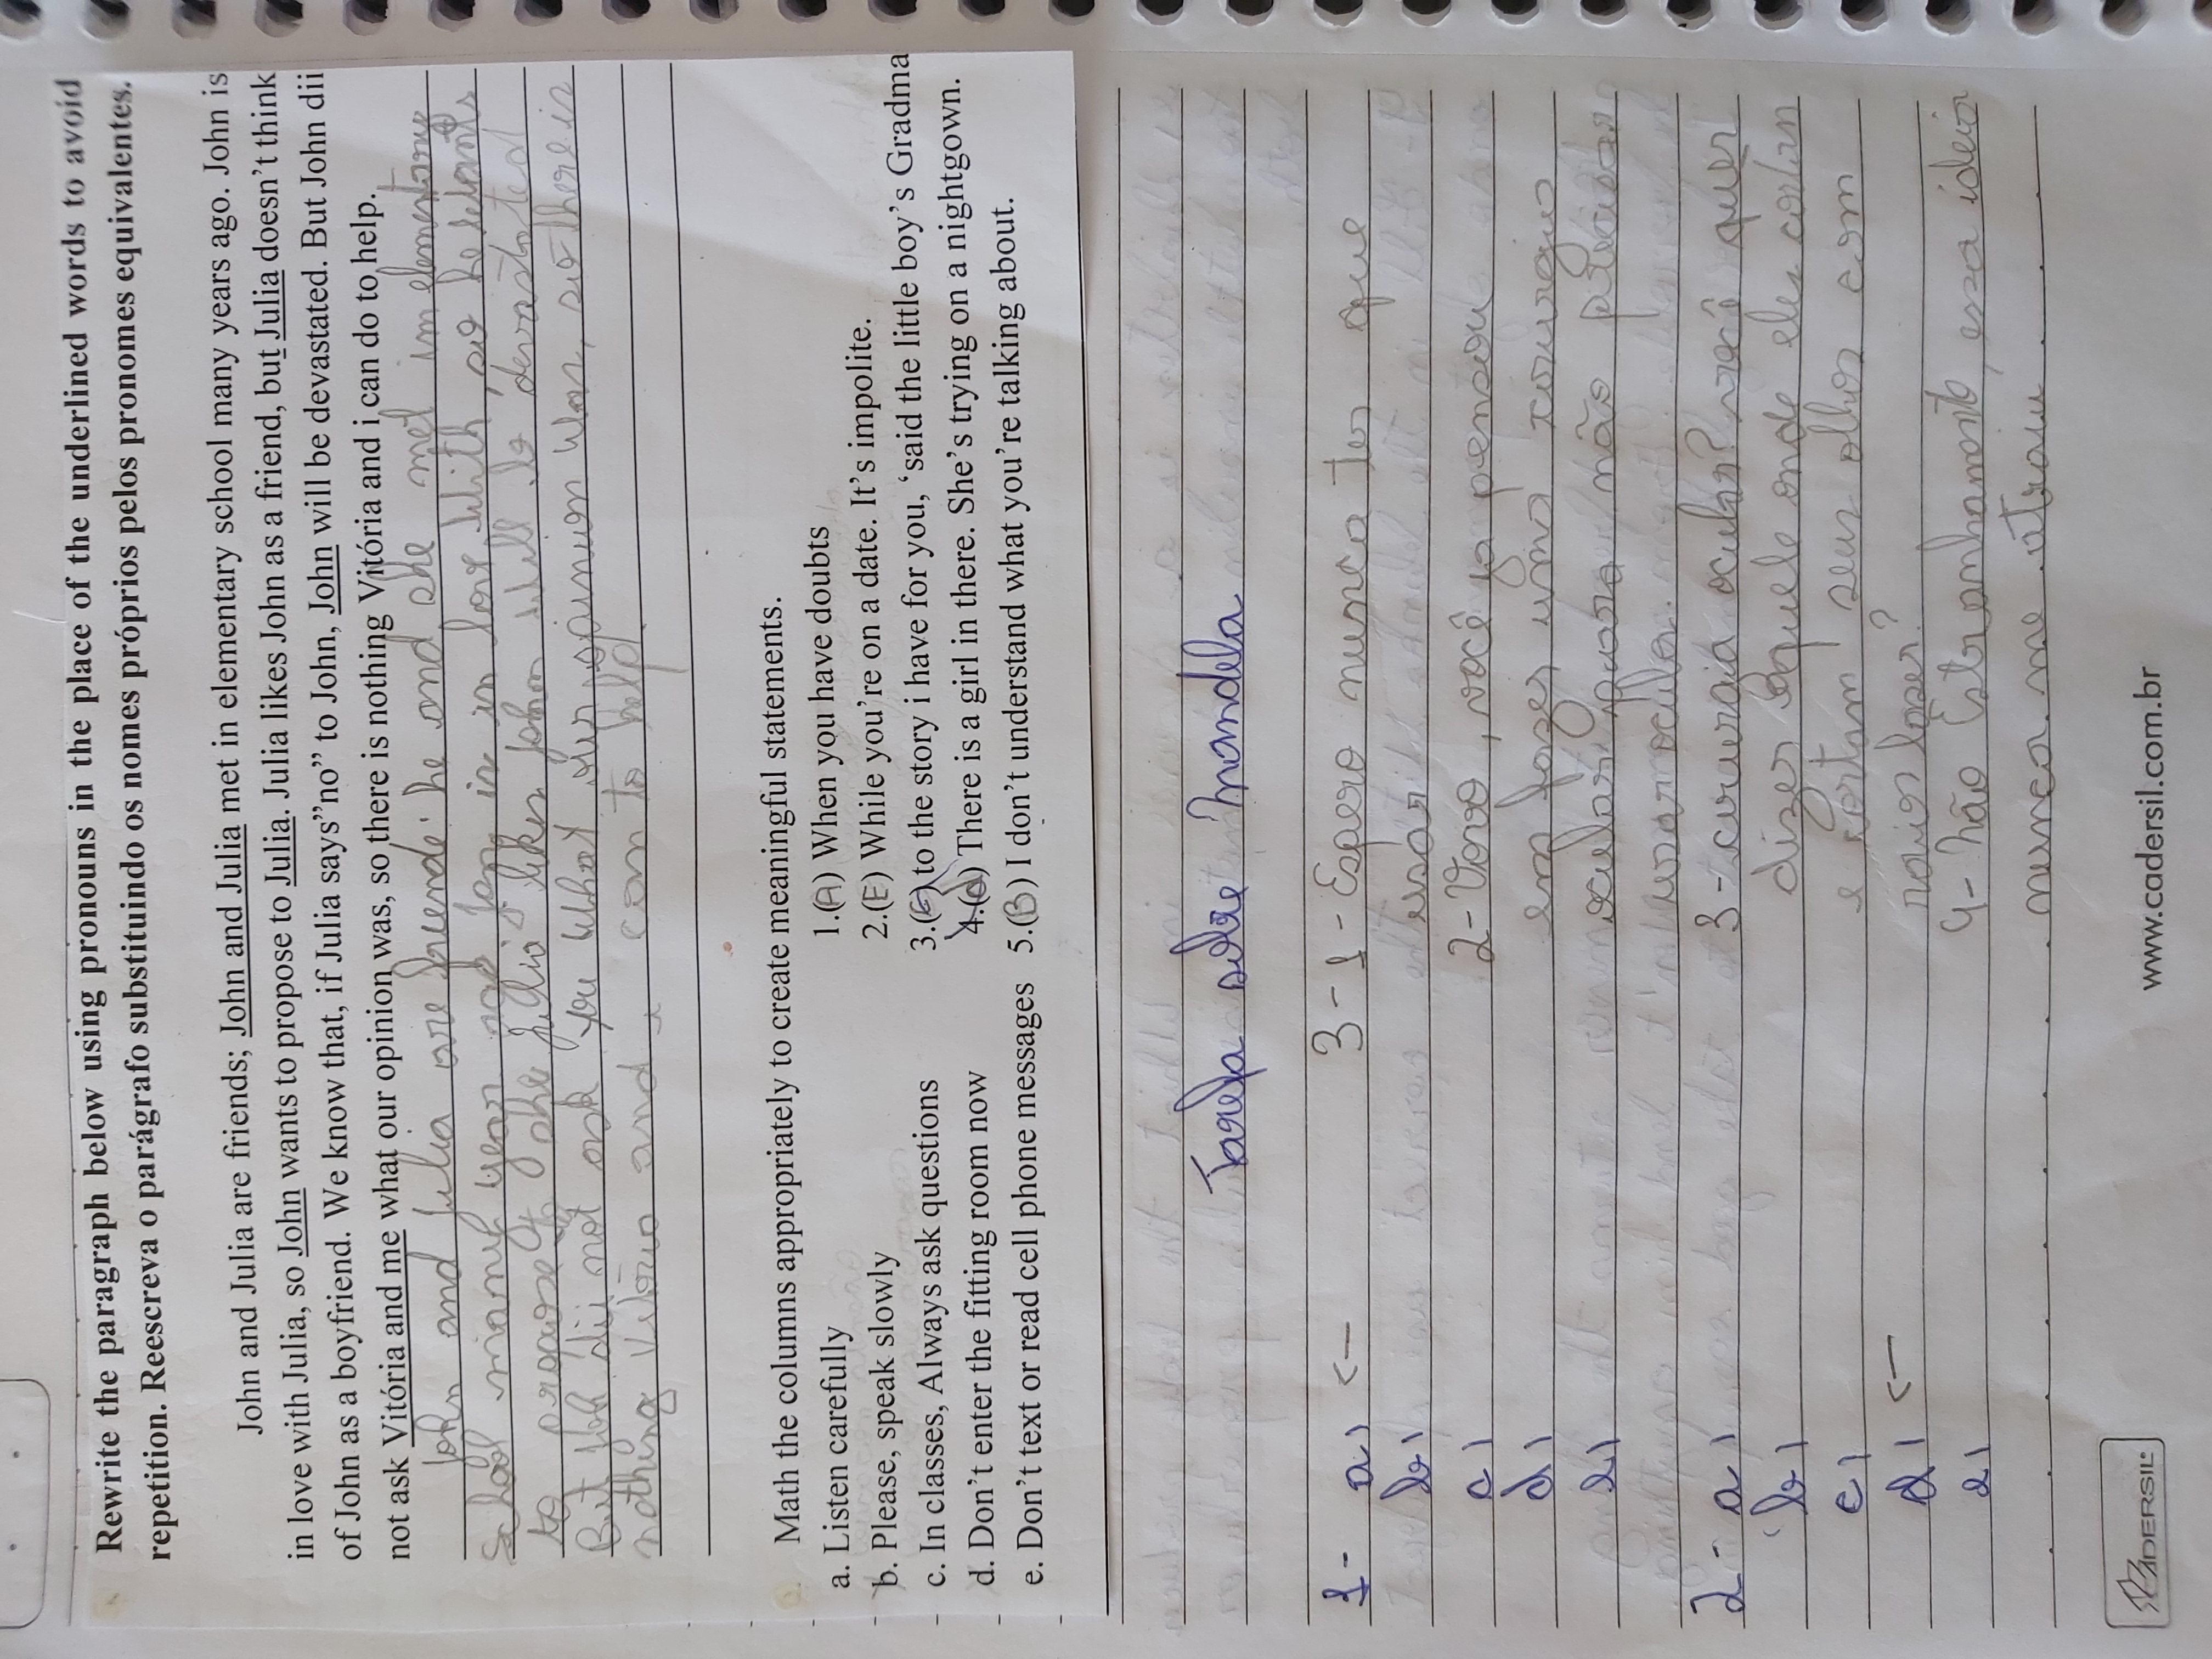 Rewrite the paragraph below using pronouns in the place of the underlined words to avoid
repetition. Reescreva o parágrafo substituindo os nomes próprios pelos pronomes equivalentes.
John and Julia are friends; John and Julia met in elementary school many years ago. John is
in love with Julia, so John wants to propose to Julia. Julia likes John as a friend, but Julia doesn't think
of John as a boyfriend. We know that, if Julia says"no" to John, John will be devastated. But John dii
not ask Vitória and me what our opinion was, so there is nothing Vitória and i can do to help.
John and Julia are friends: he and she met im elementary
School many year ago. is in love With, so he Wants
to propose to she Julia likes John Will be devastated
But dii not ask you What our opinion Was, so there is
nothing Vitória and i can to help.
Math the columns appropriately to create meaningful statements.
a. Listen carefully 1.(A) When you have doubts
b. Please, speak slowly 2.(E) While you're on a date. It's impolite.
c. In classes, Always ask questions 3.(C) to the story i have for you, 'said the little boy's Gradma
d. Don't enter the fitting room now 4.(d) There is a girl in there. She's trying on a nightgown.
e. Don't text or read cell phone messages 5.(B) I don't understand what you're talking about.
Tarefa sobre Mandela
1- a) ← 3-1- Espero nunca ter que
b) usar
c) 2- Vovo, você ja pensou
d) em fazer uma
e) ocular para não precisar
usar
2- a) 3- cirurgia ocular? você quer
b) dizer aquele onde eles
c) e cortam seus olhos com
d) ← raios laser?
e) 4- não Estranhamente, essa ideia
nunca me atraiu
CADERSIL
www.cadersil.com.br